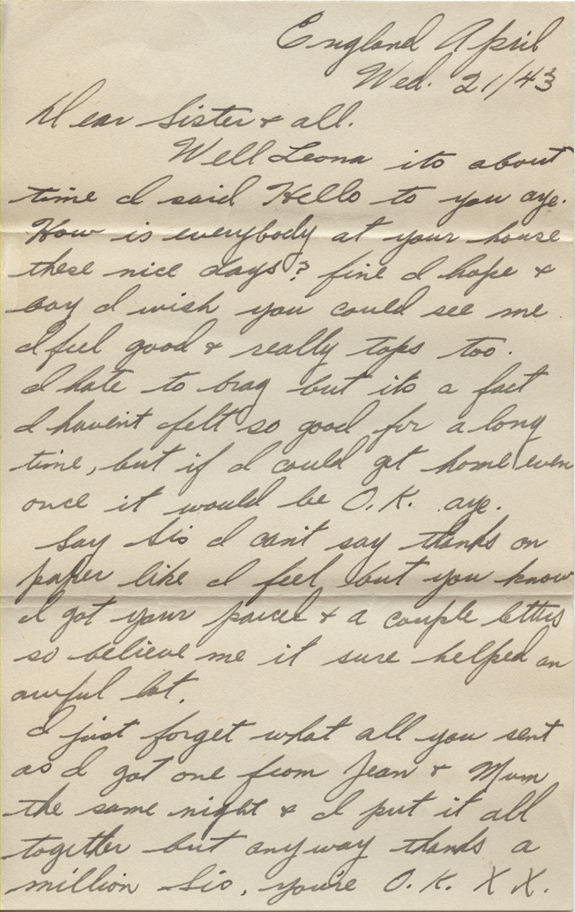 England April
Wed. 21/43
Dear Sister & all.
Well Leona its about
time I said Hello to you aye.
How is everybody at your house
these nice days? fine I hope &
boy I wish you could see me.
I feel good & really tops too.
I hate to brag but its a fact
I havent felt so good for a long
time, but if I could get home even
once it would be O.K. aye.
Say Sis I can't say thanks on
paper like I feel, but you know
I got your parcel & a couple letters
so believe me it sure helped an
awful lot.
I just forget what all you sent
as I got one from Jean & Mum
the same night & I put it all
together but anyway thanks a
million Sis, you're O.K. X X.